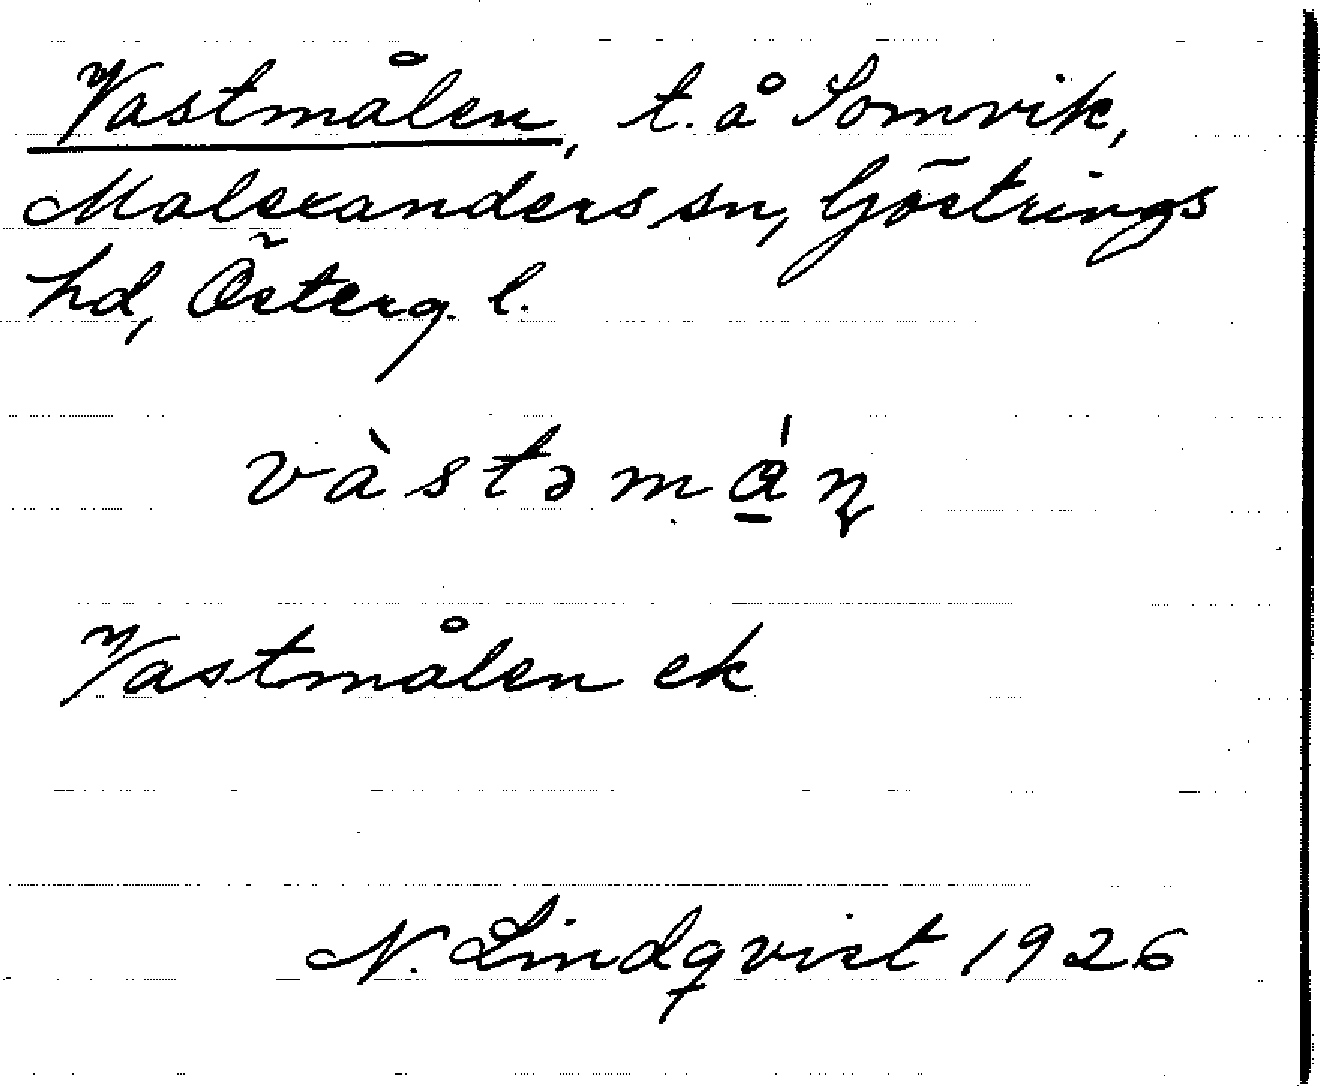 Vastmålen, t. å Somvik,
Malexanders sn, Göstrings
hd, Österg. l.
vàstəmá̱ɳ
Vastmålen ek
N. Lindqvist 1926